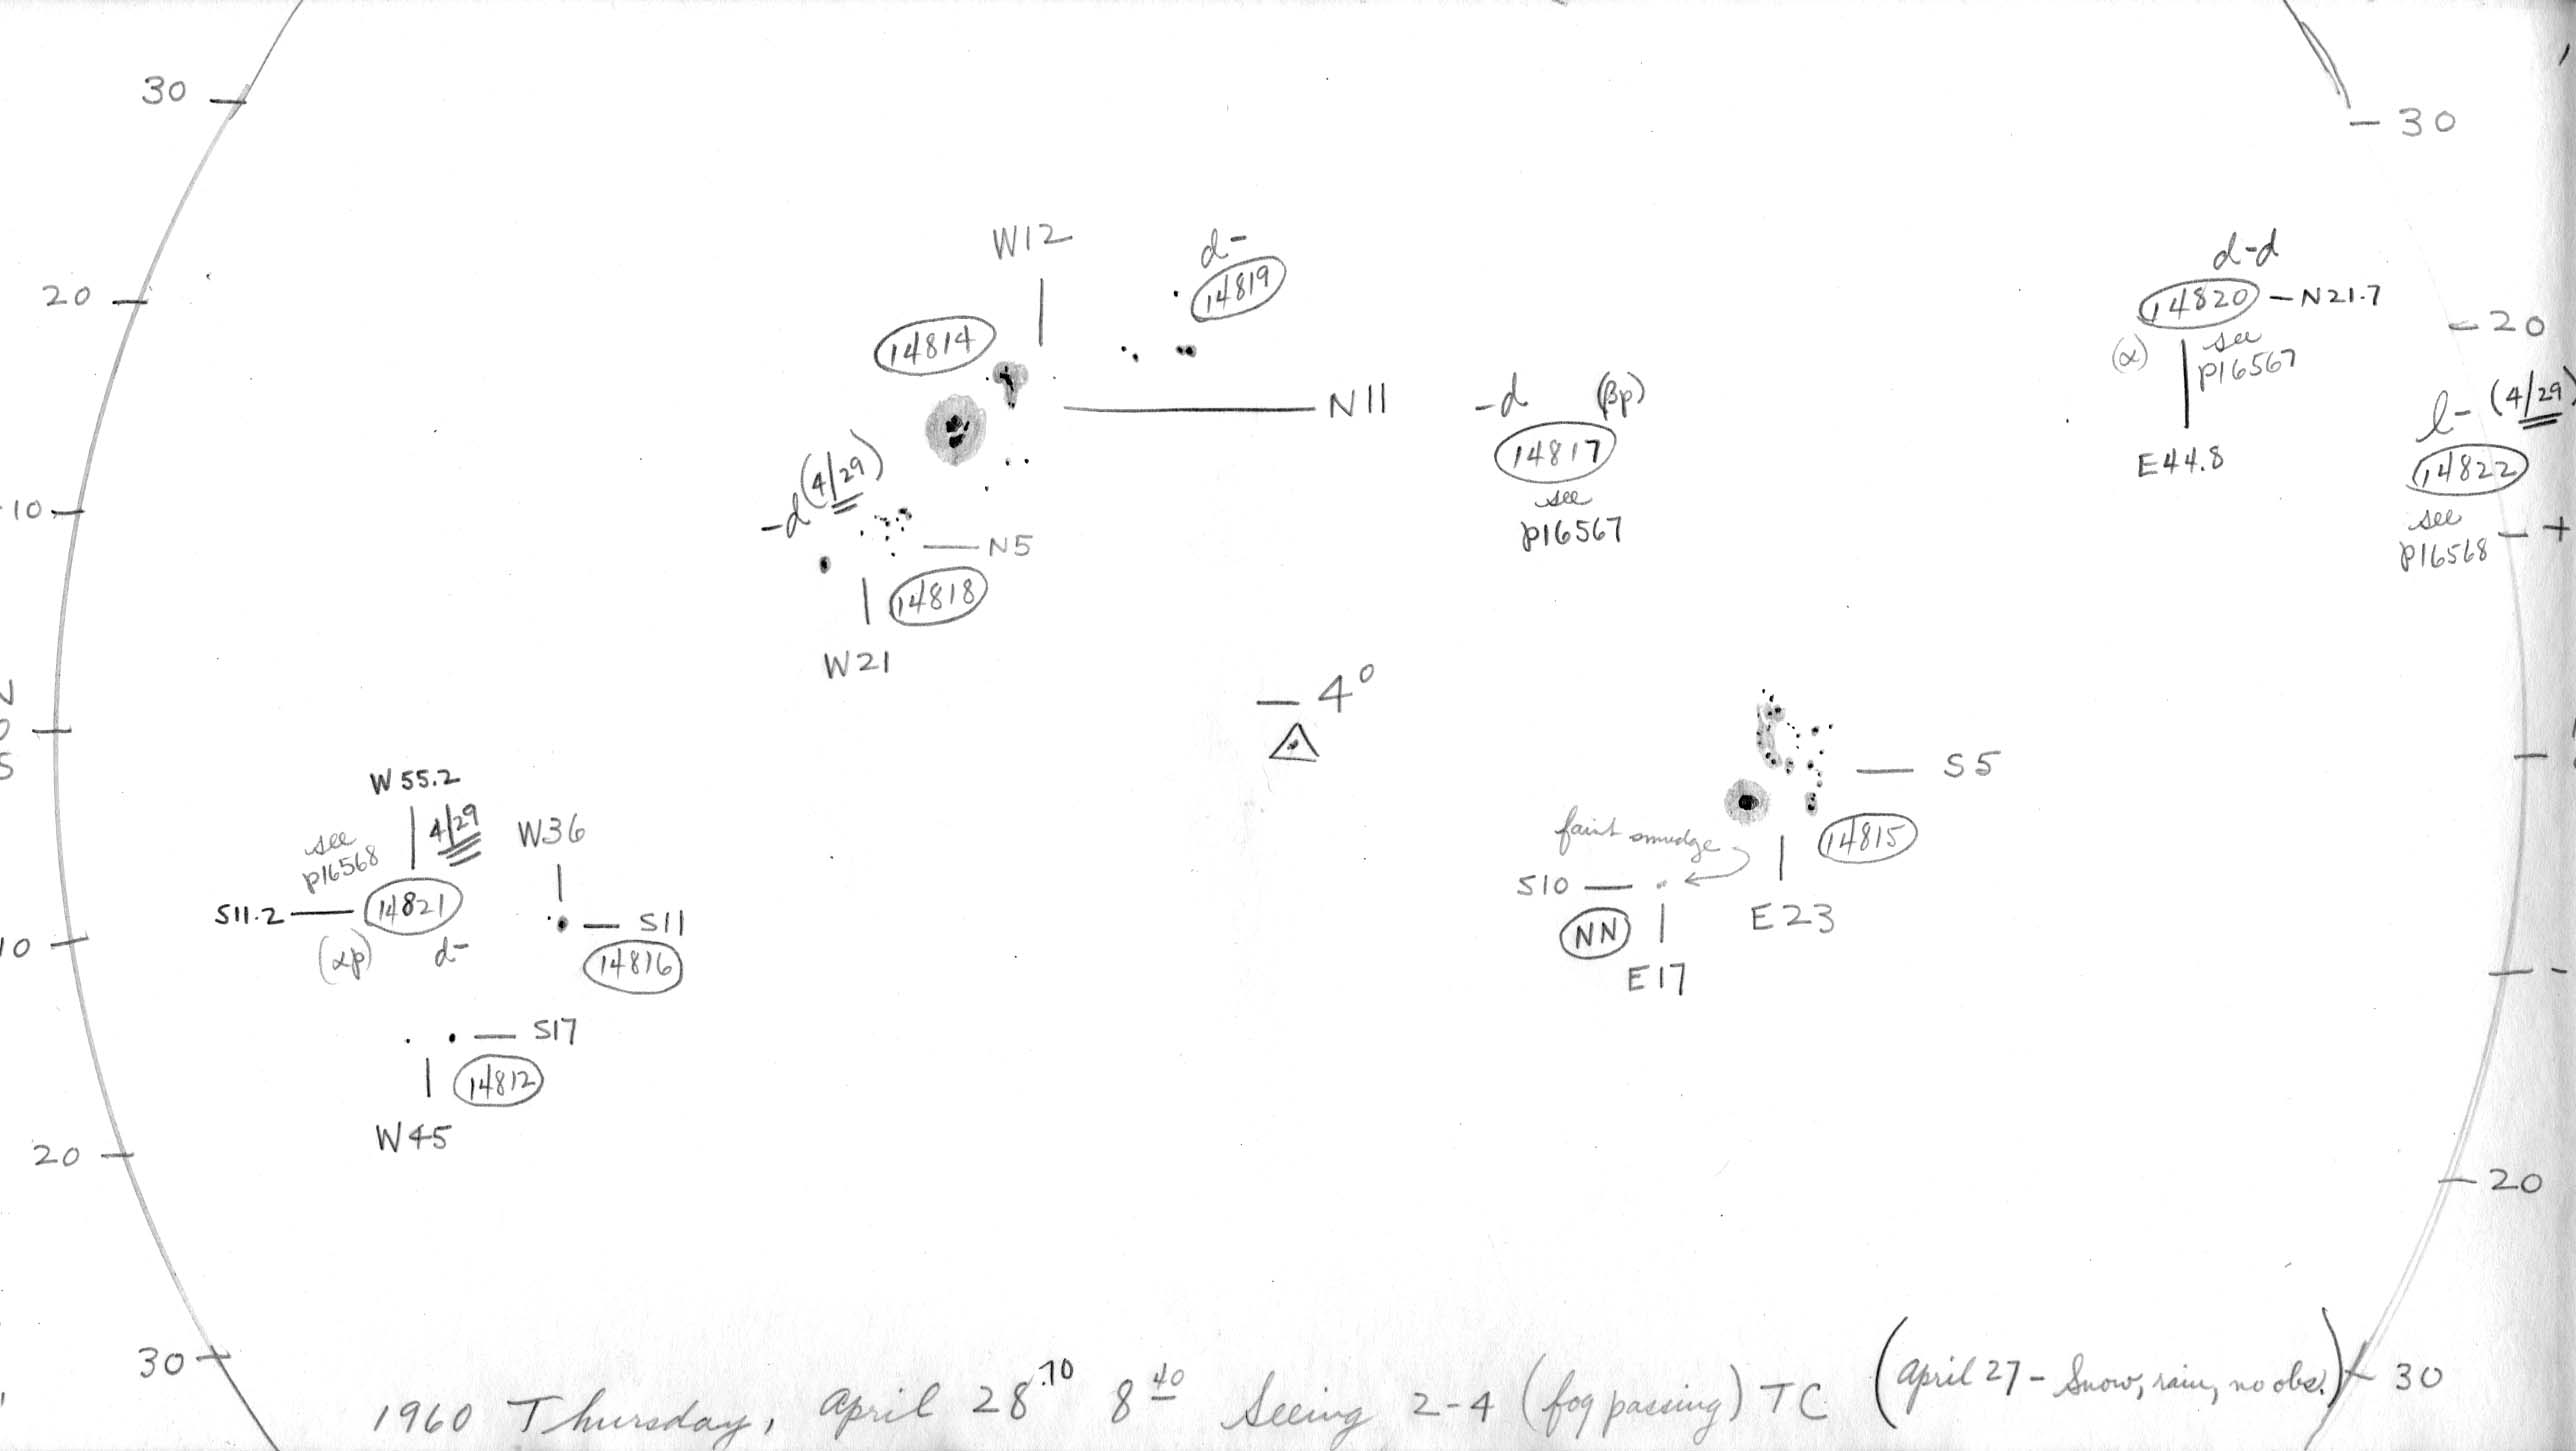 30
30
20
20
10
0
10
20
20
30
30
W12
d-
14819
14814
N11
-d (4/29)
N5
14818
W21
-d (βp)
14817
see
p16567
d-d
14820 - N21.7
(α)
see
p16567
E44.8
l- (4/29)
14822
see
p16568
- 4°
S5
14815
E23
faint smudge
S10
NN
E17
W55.2
4/29
see
p16568
S11.2
14821
(αp)
d-
W36
S11
14816
S17
14812
W45
1960 Thursday, April 28.70 8 40 Seeing 2-4 (fog passing) TC (April 27 - Snow, rain, no obs.)